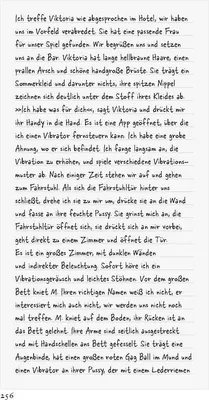 Ich treffe Viktoria wie abgesprochen im Hotel, wir haben
uns im Vorfeld verabredet. Sie hat eine passende Frau
für unser Spiel gefunden. Wir begrüßen uns und setzen
uns an die Bar. Viktoria hat lange hellbraune Haare, einen
prallen Arsch und schöne handgroße Brüste. Sie trägt ein
Sommerkleid und darunter nichts, ihre spitzen Nippel
zeichnen sich deutlich unter dem Stoff ihres Kleides ab
»Ich habe was für dich«, sagt Viktoria und drückt mir
ihr Handy in die Hand. Es ist eine App geöffnet, über die
ich einen Vibrator fernsteuern kann. Ich habe eine grobe
Ahnung, wo er sich befindet. Ich fange langsam an, die
Vibration zu erhöhen, und spiele verschiedene Vibrations-
muster ab. Nach einiger Zeit stehen wir auf und gehen
zum Fahrstuhl. Als sich die Fahrstuhltür hinter uns
schließt, drehe ich sie zu mir um, drücke sie an die Wand
und fasse an ihre feuchte Pussy. Sie grinst mich an, die
Fahrstuhltür öffnet sich, sie drückt sich an mir vorbei,
geht direkt zu einem Zimmer und öffnet die Tür.
Es ist ein großes Zimmer, mit dunklen Wänden
und indirekter Beleuchtung. Sofort höre ich ein
Vibrationsgeräusch und leichtes Stöhnen. Vor dem großen
Bett kniet M. Ihren richtigen Namen weiß ich nicht, er
interessiert mich auch nicht, wir werden uns nicht noch
mal treffen. M. kniet auf dem Boden, ihr Rücken ist an
das Bett gelehnt. Ihre Arme sind seitlich ausgestreckt
und mit Handschellen ans Bett gefesselt. Sie trägt eine
Augenbinde, hat einen großen roten Gag Ball im Mund und
einen Vibrator an ihrer Pussy, der mit einem Lederriemen
256